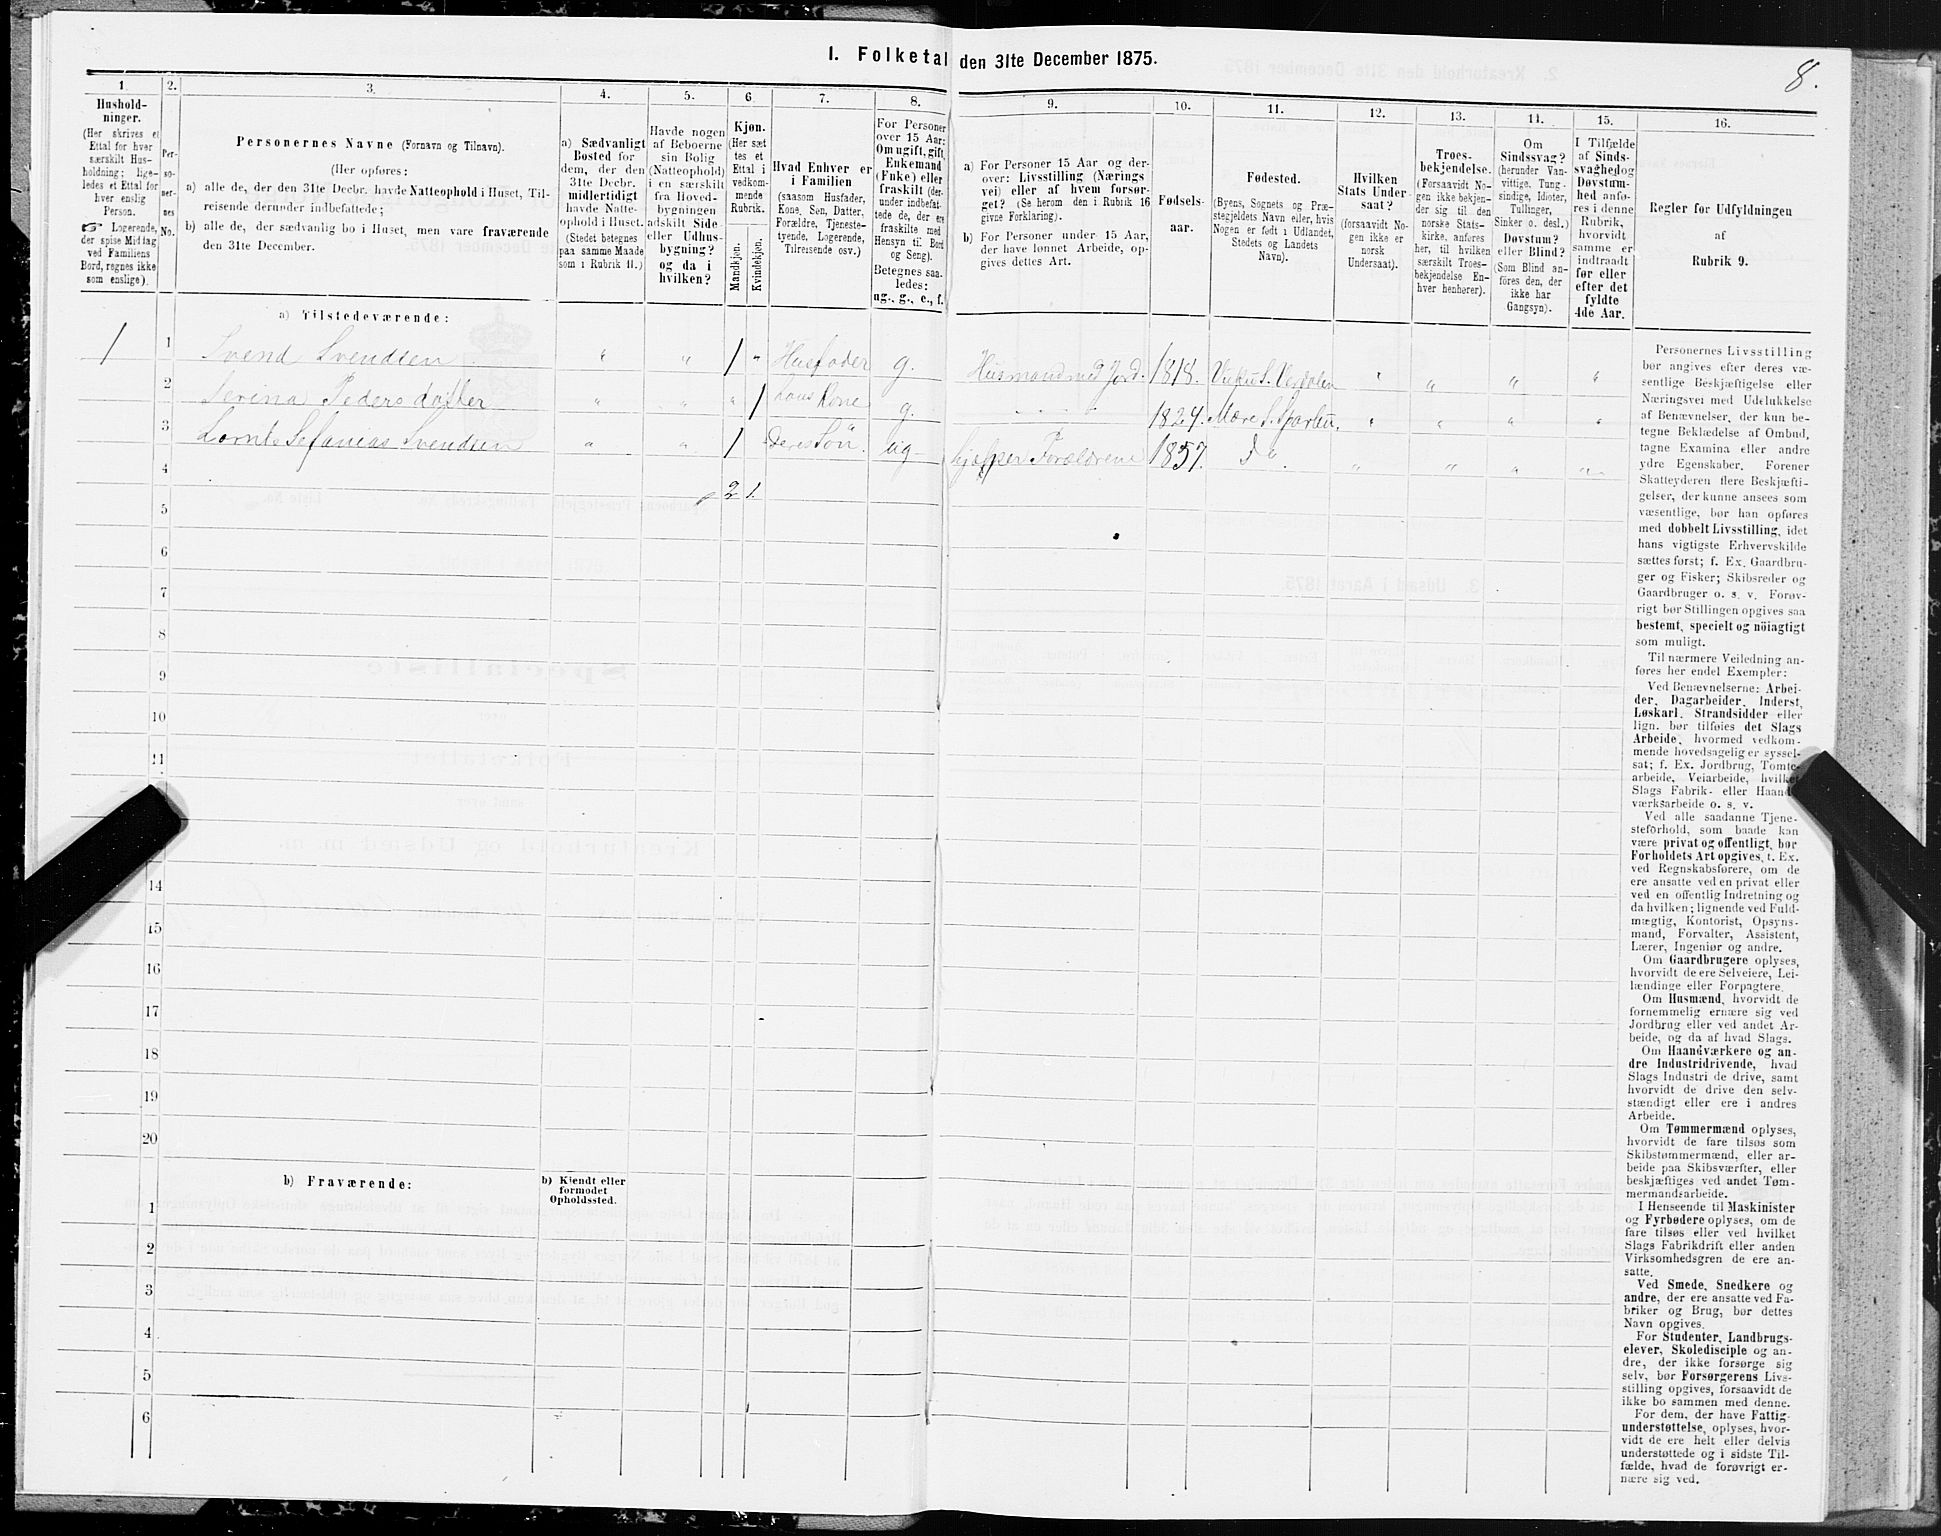 I. Folketal den 31te December 1875.
8.
1.
Hushold-
ninger.
(Her skrives et
Ettal for hver
særskilt Hus-
holdning; lige-
ledes et Ettal for
hver enslig
Person.
☞ Logerende,
der spise Middag
ved Familiens
Bord, regnes ikke
som enslige).
2.
Per-
so-
ner-
nes
No.
3.
Personernes Navne (Fornavn og Tilnavn).
(Her opføres:
a) alle de, der den 31te Decbr. havde Natteophold i Huset, Til-
reisende derunder indbefattede;
b) alle de, der sædvanlig bo i Huset, men vare fraværende
den 31te December.
4.
a) Sædvanligt
Bosted for
dem, der den
31te Decbr.
midlertidigt
havde Natte-
ophold i Huset.
(Stedet betegnes
paa samme Maade
som i Rubrik 11.)
5.
Havde nogen
af Beboerne
sin Bolig
(Natteophold)
i en særskilt
fra Hoved-
bygningen
adskilt Side-
eller Udhus-
bygning?
og da i
hvilken?
6.
Kjøn.
(Her sæt-
tes et
Ettal i
vedkom-
mende
Rubrik.
Mandkjøn.
Kvindekjøn.
7.
Hvad Enhver er
i Familien
(saasom Husfader,
Kone, Søn, Datter,
Forældre, Tjeneste-
tyende, Logerende,
Tilreisende osv.)
8.
For Personer
over 15 Aar:
Om ugift, gift,
Enkemand
(Enke) eller
fraskilt (der-
under indbefat-
tede de, der ere
fraskilte med
Hensyn til Bord
og Seng).
Betegnes saa-
ledes:
ug., g., e., f.
9.
a) For Personer 15 Aar og der-
over: Livsstilling (Nærings-
vei) eller af hvem forsør-
get? (Se herom den i Rubrik 16
givne Forklaring).
b) For Personer under 15 Aar,
der have lønnet Arbeide, op-
gives dettes Art.
10.
Fødsels-
aar.
11.
Fødested.
(Byens, Sognets og Præ-
stegjeldets Navn eller, hvis
Nogen er født i Udlandet,
Stedets og Landets
Navn).
12.
Hvilken
Stats Under-
saat?
(forsaavidt No-
gen ikke er
norsk
Undersaat).
13.
Troes-
bekjendelse.
(Forsaavidt No-
gen ikke bekjen-
der sig til den
norske Stats-
kirke, anføres
her, til hvilken
særskilt Troes-
bekjendelse En-
hver henhører).
14.
Om
Sindssvag?
(herunder Van-
vittige, Tung-
sindige, Idioter,
Tullinger,
Sinker o. desl.)
Døvstum?
eller Blind?
(Som Blind an-
føres den, der
ikke har
Gangsyn).
15.
I Tilfælde
af Sinds-
svaghed og
Døvstum-
hed anfø-
res i denne
Rubrik,
hvorvidt
samme er
indtraadt
før eller
efter det
fyldte
4de Aar.
16.
Regler for Udfyldningen
af
Rubrik 9.
a) Tilstedeværende:
1 1 Svend Svendsen " " 1 " Husfader g. Husmand med Jord. 1818. Vuku S. Verdalen " " " "
2 Serina Pedersdatter " " " 1 hans Kone g. 1824. Mære S. Sparbu. " " " "
3 Lornts Sefanias Svendsen " " 1 deres Søn. ug hjelper Forældrene 1857. d". " " " "
4
2 1.
5
6
7
8
9
10
11
14
15
16
17
18
19
20
b) Fraværende:
b) Kjendt eller
formodet
Opholdssted.
1
2
3
4
5
6
Personernes Livsstilling
bør angives efter deres væ-
sentlige Beskjæftigelse eller
Næringsvei med Udelukkelse
af Benævnelser, der kun be-
tegne Beklædelse af Ombud,
tagne Examina eller andre
ydre Egenskaber. Forener
Skatteyderen flere Beskjæfti-
gelser, der kunne ansees som
væsentlige, bør han opføres
med dobbelt Livsstilling, idet
hans vigtigste Erhvervskilde
sættes først; f. Ex. Gaardbru-
ger og Fisker; Skibsreder og
Gaardbruger o. s. v. Forøv-
rigt bør Stillingen opgives saa
bestemt, specielt og nöiagtigt
som muligt.
Til nærmere Veiledning an-
føres her endel Exempler:
Ved Benævnelserne: Arbei-
der, Dagarbeider, Inderst,
Løskarl, Strandsidder eller
lign. bør tilføies det Slags
Arbeide, hvormed vedkom-
mende hovedsagelig er syssel-
sat; f. Ex. Jordbrug, Tomte-
arbeide, Veiarbeide, hvilket
Slags Fabrik- eller Haand-
værksarbeide o. s. v.
Ved alle saadanne Tjene-
steforhold, som baade kan
være privat og offentligt, bør
Forholdets Art opgives, t. Ex.
ved Regnskabsførere, om de
ere ansatte ved en privat eller
ved en offentlig Indretning og
da hvilken; lignende ved Fuld-
mægtig, Kontorist, Opsyns-
mand, Forvalter, Assistent,
Lærer, Ingeniør og andre.
Om Gaardbrugere oplyses,
hvorvidt de ere Selveiere, Lei-
lændinge eller Forpagtere.
Om Husmænd, hvorvidt de
fornemmelig ernære sig ved
Jordbrug eller ved andet Ar-
beide, og da af hvad Slags.
Om Haandværkere og an-
dre Industridrivende, hvad
Slags Industri de drive, samt
hvorvidt de drive den selv-
stændigt eller ere i andres
Arbeide.
Om Tømmermænd oplyses,
hvorvidt de fare tilsøs som
Skibstømmermænd, eller ar-
beide paa Skibsværfter, eller
beskjæftiges ved andet Tøm-
mermandsarbeide.
I Henseende til Maskinister
og Fyrbødere oplyses, om de
fare tilsøs eller ved hvilket
Slags Fabrikdrift eller anden
Virksomhedsgren de ere an-
satte.
Ved Smede, Snedkere og
andre, der ere ansatte ved Fa-
briker og Brug, bør dettes
Navn opgives.
For Studenter, Landbrugs-
elever, Skoledisciple og an-
dre, der ikke forsørge sig
selv, bør Forsørgerens Livs-
stilling opgives, forsaavidt de
ikke bo sammen med denne.
For dem, der have Fattig-
understøttelse, oplyses, hvor-
vidt de ere helt eller delvis
understøttede og i sidste Til-
fælde, hvad de forøvrigt er-
nære sig ved.